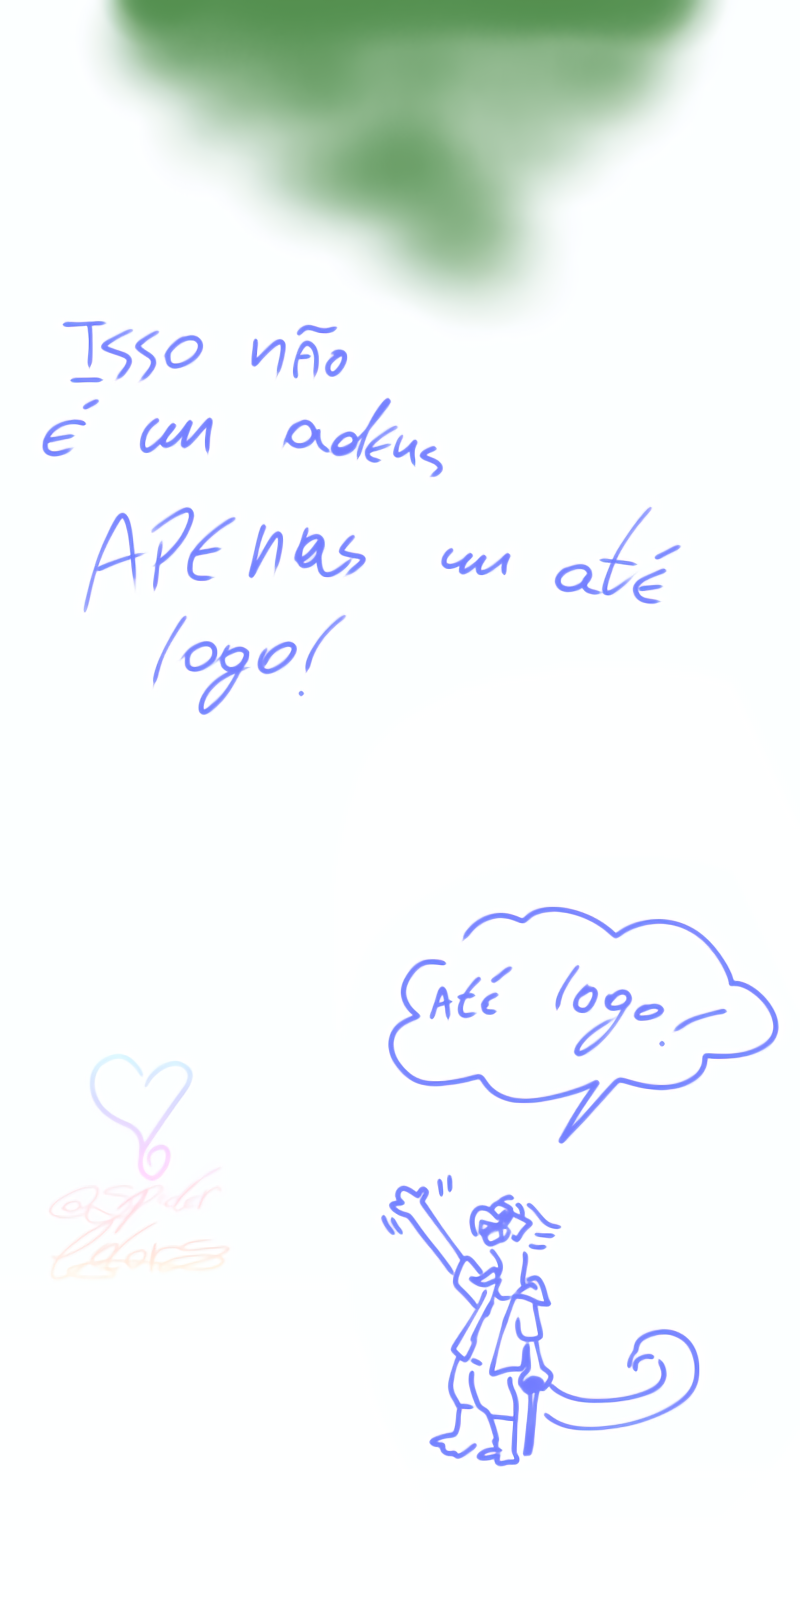 Isso não
É um adeus
APENas um até
logo!
Até logo!
@spider